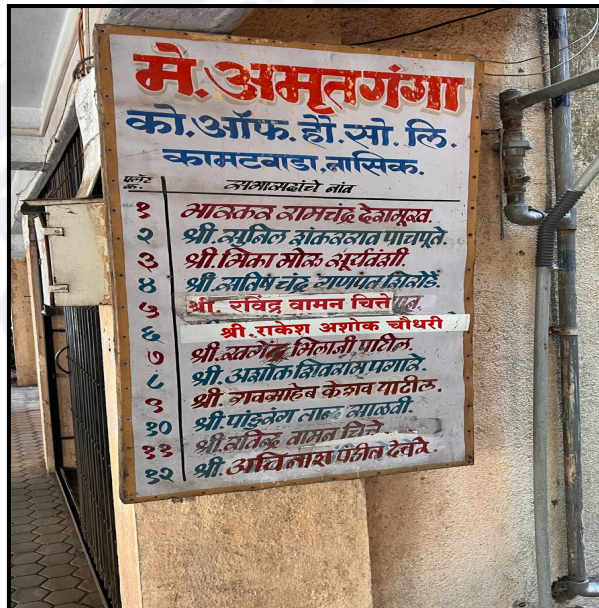 मे. अमृतगंगा
को. ऑफ. हौ. सो. लि.
कामटवाडा. नासिक.
फ्लॅट क्र. सभासदांचे नांव
१ भास्कर रामचंद्र देशमुख.
२ श्री. सुनिल शंकरराव पाचपूते.
३ श्री. भिका मोरू सूर्यवंशी.
४ श्री. सतिषचंद्र गणपत शिरोडे.
५ श्री. रविंद्र वामन चित्ते
६ श्री. राकेश अशोक चौधरी
७ श्री. खगेंद्र भिलाजी पाटील.
८ श्री. अशोक शिवराम पगारे.
९ श्री. रावसाहेब केशव पाटील.
१० श्री. पांडुरंग तानू साळवी
११ श्री. रविंद्र वामन चित्ते
१२ श्री. अविनाश पंडीत देवरे.